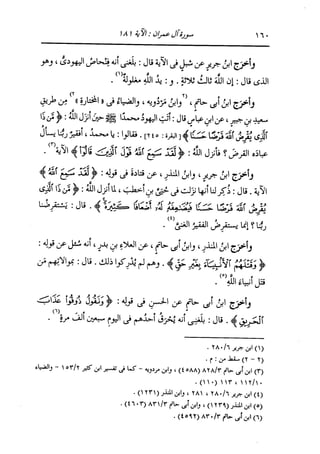 ١٦٠ سورة آل عمران : الآية ١٨١
وأخرج ابنُ جريرٍ عن شِبْلٍ فى الآيةِ قال : بلَغنى أنه فِنْحاصُ اليهودىُّ ، وهو
الذى قال : إن اللهَ ثالثُ ثلاثةٍ . و : يدُ اللهِ مغلولةٌ(١) .
وأخرج ابنُ أبى حاتمٍ ، (٢وابنُ مَرْدُويه ، والضياءُ فى « المختارةِ »٢) من طريقِ
سعيدِ بنِ جبيرٍ ، عن ابنِ عباسٍ قال : أتَت اليهودُ محمدًا ﷺ حينَ أنزَل اللهُ : ﴿ مَّن ذَا
ٱلَّذِى يُقْرِضُ ٱللَّهَ قَرْضًا حَسَنًا ﴾ [ البقرة : ٢٤٥ ] . فقالوا : يا محمدُ ، أفقيرٌ ربُّنا يسألُ
عبادَه القرضَ ؟ فأنزَل اللهُ : ﴿ لَّقَدْ سَمِعَ ٱللَّهُ قَوْلَ ٱلَّذِينَ قَالُوٓا۟ ﴾ الآية(٣) .
وأخرج ابنُ جريرٍ ، وابنُ المنذرِ ، عن قتادةَ فى قولِه : ﴿ لَّقَدْ سَمِعَ ٱللَّهُ ﴾
الآية . قال : ذُكِر لنا أنها نزَلت فى حُيَىِّ بنِ أخطبَ ، لما أنزَل اللهُ : ﴿ مَّن ذَا ٱلَّذِى
يُقْرِضُ ٱللَّهَ قَرْضًا حَسَنًا فَيُضَـٰعِفَهُۥ لَهُۥٓ أَضْعَافًا كَثِيرَةً ﴾ . قال : يَستقرِضُنا
ربُّنا ؟ إنما يَستقرِضُ الفقيرُ الغنىَّ(٤) .
وأخرج ابنُ المنذرِ ، وابنُ أبى حاتمٍ ، عن العلاءِ بنِ بدرٍ ، أنه سُئل عن قولِه :
﴿ وَقَتْلَهُمُ ٱلْأَنۢبِيَآءَ بِغَيْرِ حَقٍّ ﴾ . وهم لم يُدرِكوا ذلك . قال : بموالاتِهم مَن
قتَل أنبياءَ اللهِ(٥) .
وأخرَج ابنُ أبى حاتمٍ عن الحسنِ فى قولِه : ﴿ وَنَقُولُ ذُوقُوا۟ عَذَابَ
ٱلْحَرِيقِ ﴾ . قال : بلَغنى أنه يُحرَقُ أحدُهم فى اليومِ سبعين ألفَ مرةٍ(٦) .
(١) ابن جرير ٦/ ٢٨٠ .
(٢ - ٢) سقط من : م .
(٣) ابن أبى حاتم ٣/ ٨٢٨ (٤٥٨٨) ، وابن مردويه - كما فى تفسير ابن كثير ٢/ ١٥٣ - والضياء
١٠/ ١١٢ ، ١١٣ (١١٠) .
(٤) ابن جرير ٦/ ٢٨٠ ، ٢٨١ ، وابن المنذر (١٢٣١) .
(٥) ابن المنذر (١٢٣٩) ، وابن أبى حاتم ٣/ ٨٣١ (٤٦٠٣) .
(٦) ابن أبى حاتم ٣/ ٨٣٠ (٤٥٩٢) .